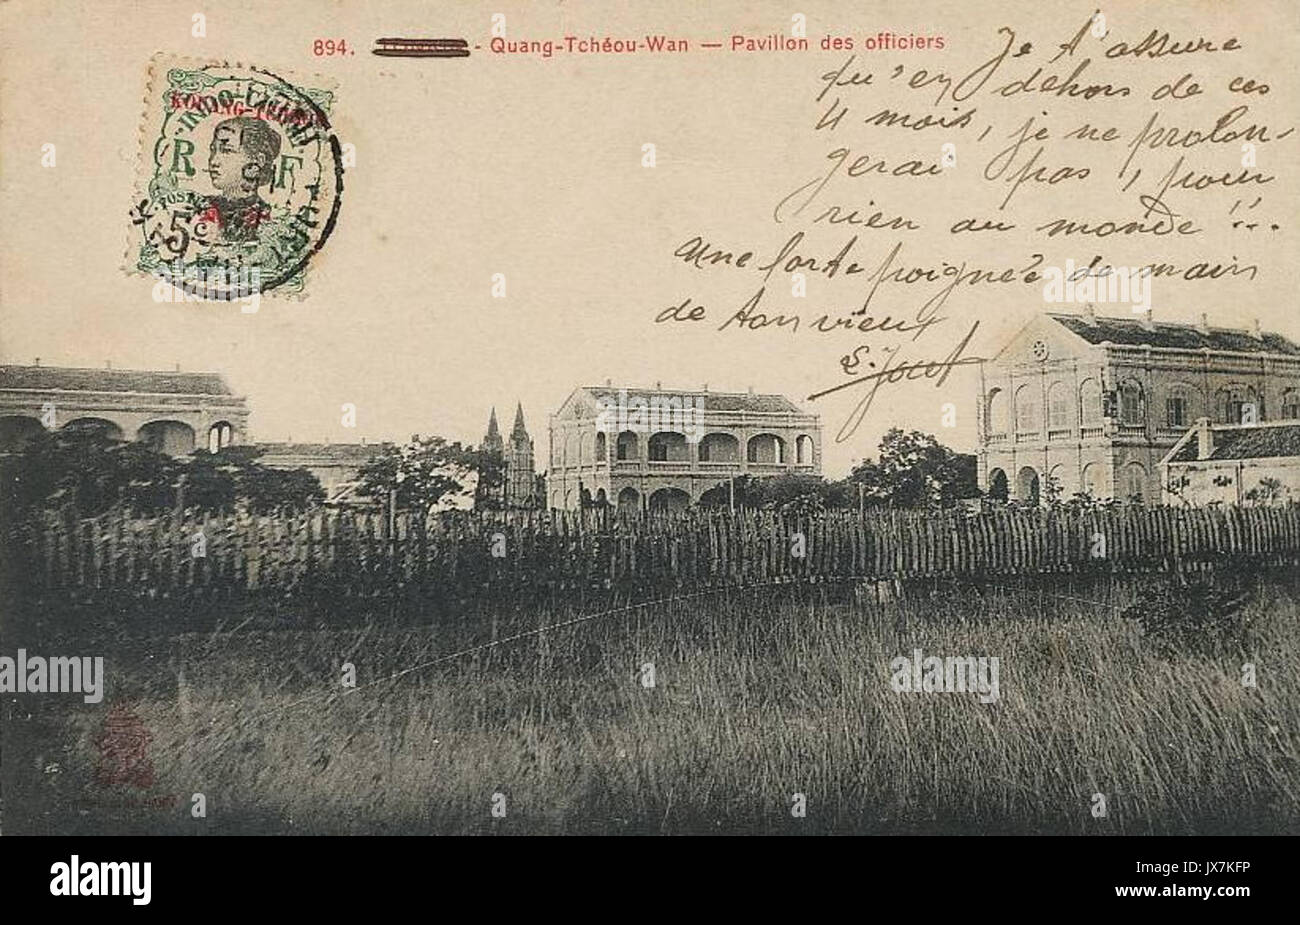 894. - Quang-Tchéou-Wan — Pavillon des officiers
KOUANG-TCHÉOU
INDO-CHINE
R F
POSTES
5c
Je t'assure
qu'en dehors de ces
4 mois, je ne prolon-
gerai pas, pour
rien au monde !!...
Une forte poignée de main
de ton vieux
alamy
alamy
alamy
Image ID: JX7KFP
www.alamy.com